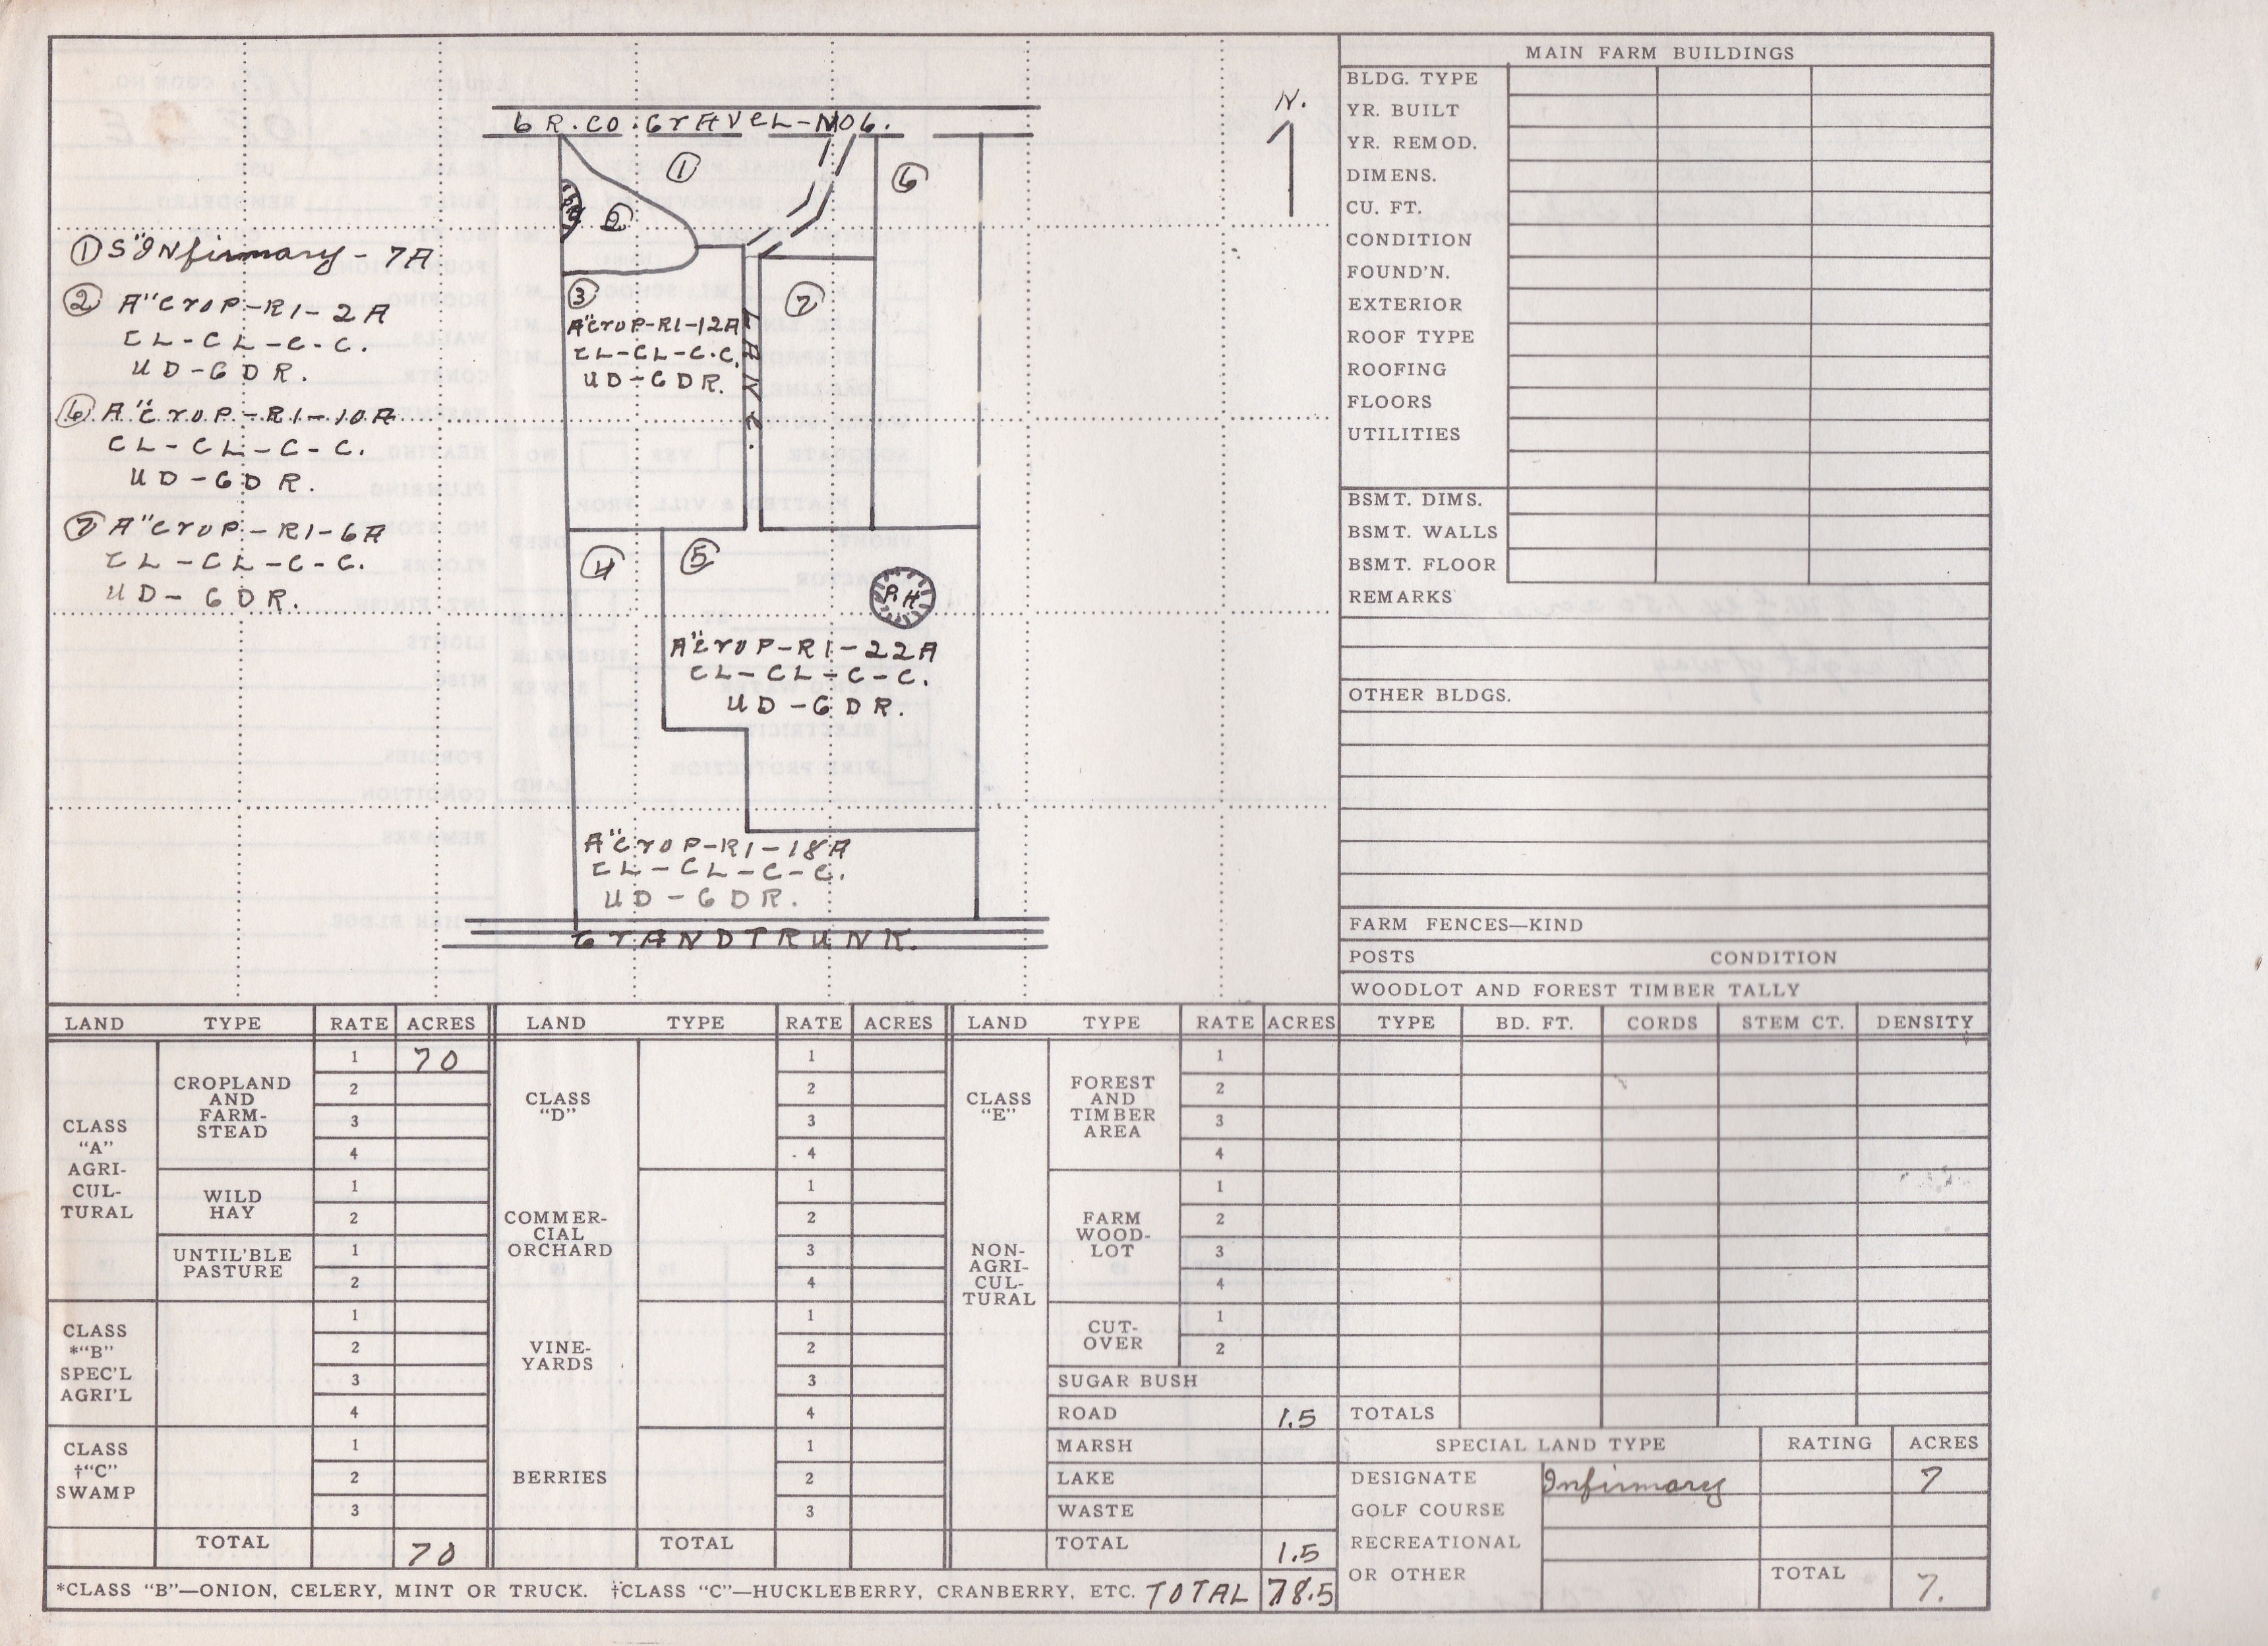 GR. CO. GrAVEL-NO 6.
N.
①
⑥
②
① S" INfirmary - 7A
② A" CroP-R1-2A
CL-CL-C-C.
UD-GDR.
⑥ A" CroP-R1-10A
CL-CL-C-C.
UD-GDR.
⑦ A" CroP-R1-6A
CL-CL-C-C.
UD-GDR.
③
A" CroP-R1-12A
CL-CL-C-C.
UD-GDR.
LANE.
⑦
④
⑤
RH
A" CroP-R1-22A
CL-CL-C-C.
UD-GDR.
A" CroP-R1-18A
CL-CL-C-C.
UD-GDR.
GrAND TRUNK.
MAIN FARM BUILDINGS
BLDG. TYPE
YR. BUILT
YR. REMOD.
DIMENS.
CU. FT.
CONDITION
FOUND'N.
EXTERIOR
ROOF TYPE
ROOFING
FLOORS
UTILITIES
BSMT. DIMS.
BSMT. WALLS
BSMT. FLOOR
REMARKS
OTHER BLDGS.
FARM FENCES—KIND
POSTS CONDITION
WOODLOT AND FOREST TIMBER TALLY
LAND TYPE RATE ACRES LAND TYPE RATE ACRES LAND TYPE RATE ACRES TYPE BD. FT. CORDS STEM CT. DENSITY
CLASS
"A"
AGRI-
CUL-
TURAL
CROPLAND
AND
FARM-
STEAD
1 70
2
3
4
WILD
HAY
1
2
UNTIL'BLE
PASTURE
1
2
CLASS
*"B"
SPEC'L
AGRI'L
1
2
3
4
CLASS
†"C"
SWAMP
1
2
3
TOTAL 70
CLASS
"D"
1
2
3
4
COMMER-
CIAL
ORCHARD
1
2
3
4
VINE-
YARDS
1
2
3
4
BERRIES
1
2
3
TOTAL
CLASS
"E"
NON-
AGRI-
CUL-
TURAL
FOREST
AND
TIMBER
AREA
1
2
3
4
FARM
WOOD-
LOT
1
2
3
4
CUT-
OVER
1
2
SUGAR BUSH
ROAD 1.5
MARSH
LAKE
WASTE
TOTAL 1.5
TOTALS
SPECIAL LAND TYPE RATING ACRES
DESIGNATE Infirmary 7
GOLF COURSE
RECREATIONAL
OR OTHER TOTAL 7.
*CLASS "B"—ONION, CELERY, MINT OR TRUCK. †CLASS "C"—HUCKLEBERRY, CRANBERRY, ETC. TOTAL 78.5